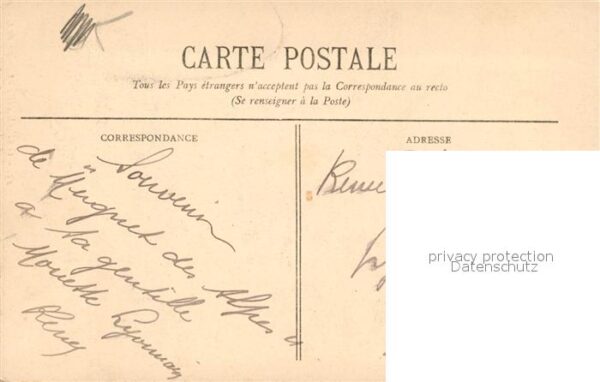 CARTE POSTALE
Tous les Pays étrangers n'acceptent pas la Correspondance au recto
(Se renseigner à la Poste)
CORRESPONDANCE
ADRESSE
Souvenir
de Muguet des Alpes
à ta gentille
Mouette
privacy protection
Datenschutz